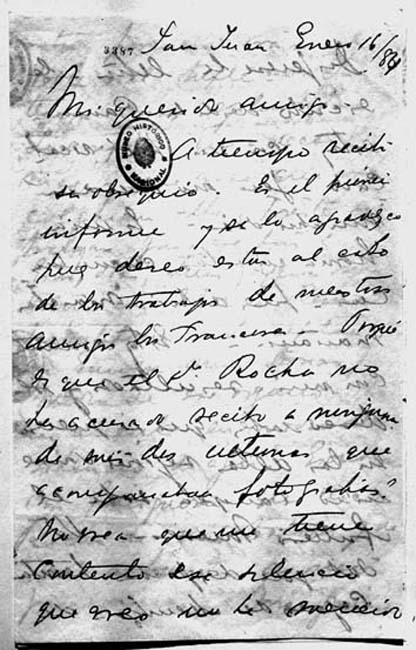 3387 San Juan Enero 16/84
Mi querido amigo
MUSEO HISTÓRICO
NACIONAL
A tiempo recibi
su obsequio. Es el primer
informe y se lo agradezco
pues deseo estar al cabo
de los trabajos de nuestros
amigos los Franceses - Porqué
es que el Dr Rocha no
ha acusado recibo a ninguna
de mis dos ultimas que
acompañaban fotografias?
que me tiene
contento ese silencio
que creo no he merecido